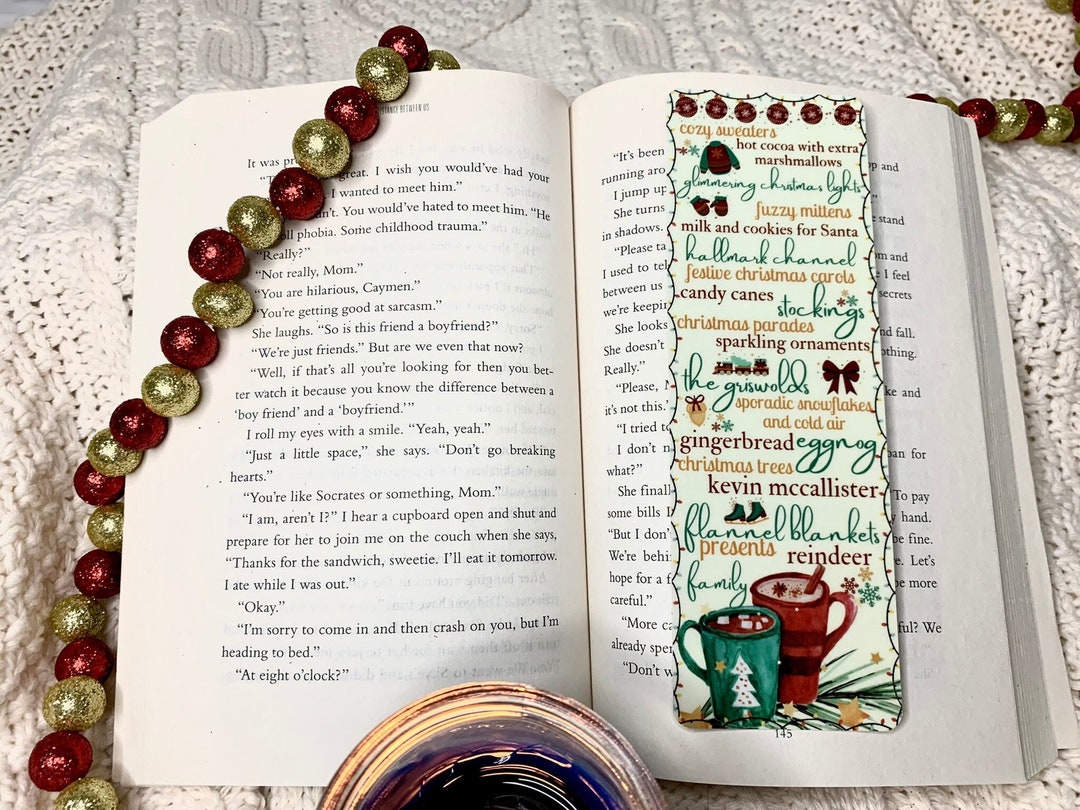 STANCE BETWEEN US
It was pr great. I wish you would've had your
I wanted to meet him."
n't. You would've hated to meet him. "He
oll phobia. Some childhood trauma."
"Really?"
"Not really, Mom."
"You are hilarious, Caymen."
"You're getting good at sarcasm."
She laughs. "So is this friend a boyfriend?"
"We're just friends." But are we even that now?
"Well, if that's all you're looking for then you bet-
ter watch it because you know the difference between a
'boy friend' and a 'boyfriend.'"
I roll my eyes with a smile. "Yeah, yeah."
"Just a little space," she says. "Don't go breaking
hearts."
"You're like Socrates or something, Mom."
"I am, aren't I?" I hear a cupboard open and shut and
prepare for her to join me on the couch when she says,
"Thanks for the sandwich, sweetie. I'll eat it tomorrow.
I ate while I was out."
"Okay."
"I'm sorry to come in and then crash on you, but I'm
heading to bed."
"At eight o'clock?"
"It's been
running aro
I jump up
She turns
in shadows.
"Please ta
I used to tel
between us
we're keepin
She looks
She doesn't
Really."
"Please, M
it's not this.'
"I tried to
I don't n
what?"
She finall
some bills I
"But I don'
We're behi
hope for a f
careful."
"More ca
already spen
"Don't w
cozy sweaters
hot cocoa with extra
marshmallows
glimmering christmas lights
fuzzy mittens
milk and cookies for Santa
hallmark channel
festive christmas carols
candy canes stockings
christmas parades
sparkling ornaments
the griswolds
sporadic snowflakes
and cold air
gingerbread eggnog
christmas trees
kevin mccallister
flannel blankets
presents reindeer
family
op and
stand
m and
I feel
secrets
nd fall.
othing.
ke and
pan for
"To pay
y hand.
be fine.
e. Let's
be more
ful? We
145